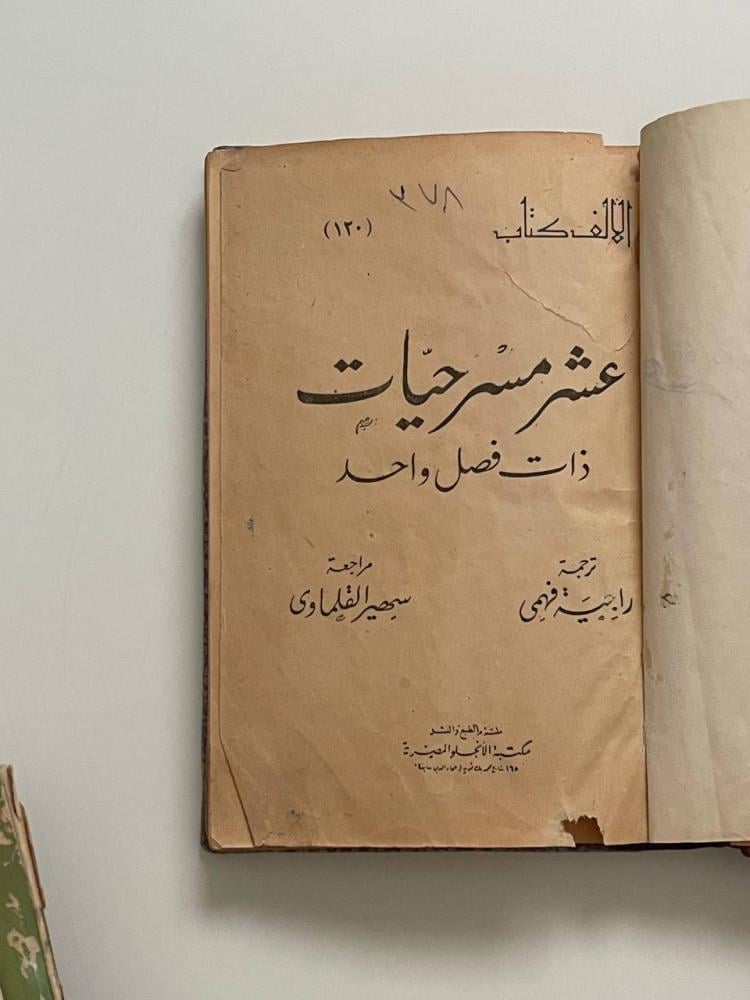 ٣٧٨
الألف كتاب (١٢٠)
عشر مسرحيّات
ذات فصل واحد
ترجمة
راجية فهمى
مراجعة
سهير القلماوى
ملتزم الطبع والنشر
مكتبة الأنجلو المصرية
١٦٥ شارع محمد بك فريد (عماد الدين سابقا)